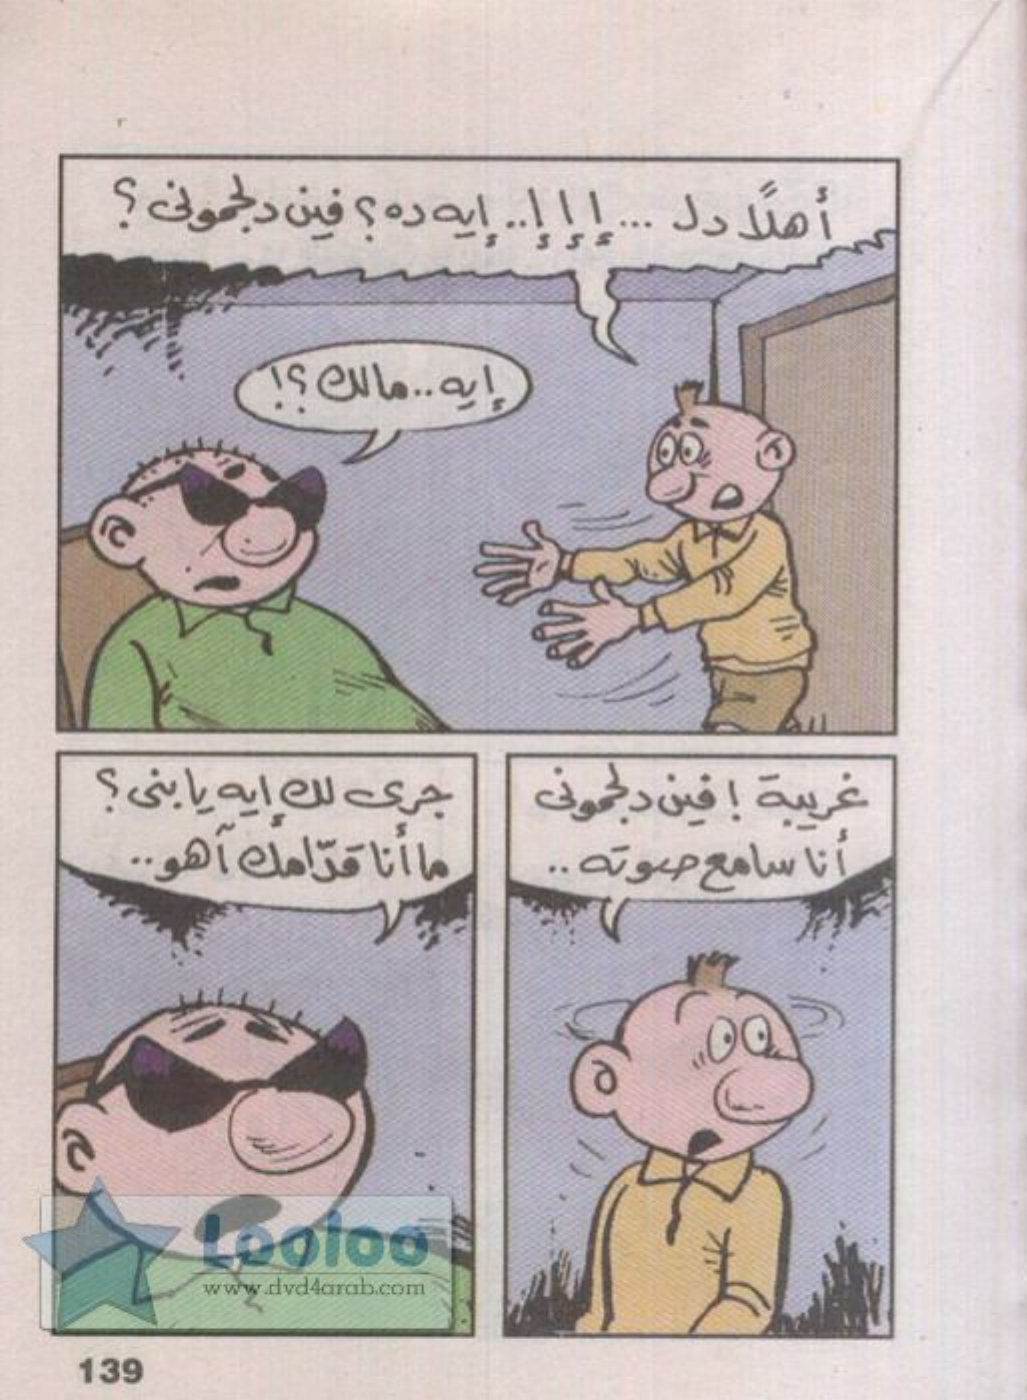 أهلًا دل ... إ إ إ .. إيه ده ؟ فين دلجمونى ؟
إيه .. مالك ؟!
غريبة ! فين دلجمونى
أنا سامع صوته ..
جرى لك إيه يا بنى ؟
ما أنا قدّامك آهو ..
Looloo
www.dvd4arab.com
139